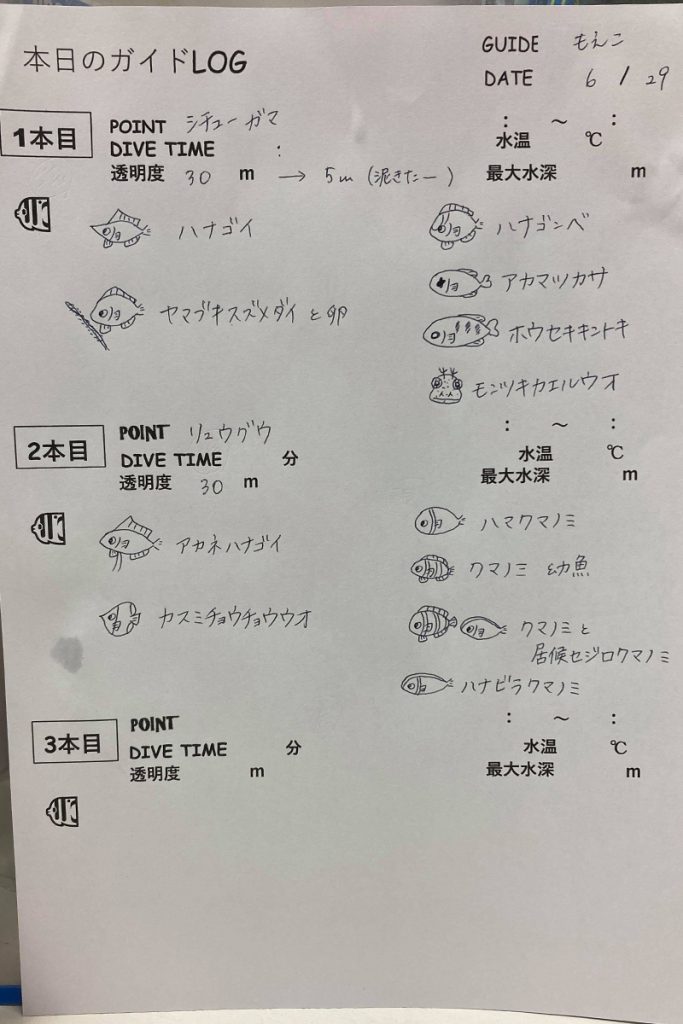 本日のガイドLOG
GUIDE もえこ
DATE 6 / 29
1本目
POINT シチューガマ
: ～ :
DIVE TIME :
水温 ℃
透明度 30 m → 5m (泥きたー)
最大水深 m
ハナゴイ
ハナゴンベ
アカマツカサ
ヤマブキスズメダイと卵
ホウセキキントキ
モンツキカエルウオ
2本目
POINT リュウグウ
: ～ :
DIVE TIME 分
水温 ℃
透明度 30 m
最大水深 m
アカネハナゴイ
ハマクマノミ
クマノミ 幼魚
カスミチョウチョウウオ
クマノミと
居候セジロクマノミ
ハナビラクマノミ
3本目
POINT
: ～ :
DIVE TIME 分
水温 ℃
透明度 m
最大水深 m